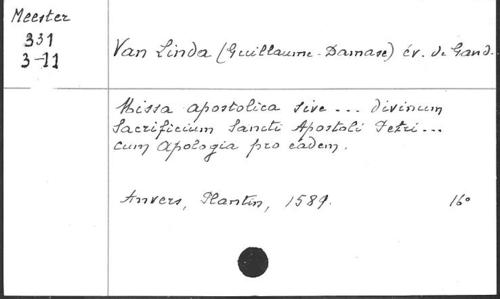 Meester
331
3-11
Van Linda (Guillaume-Damase) év. de Gand.
Missa apostolica sive ... divinum
sacrificium Sancti Apostoli Petri ...
cum apologia pro eadem.
Anvers, Plantin, 1589. 16°